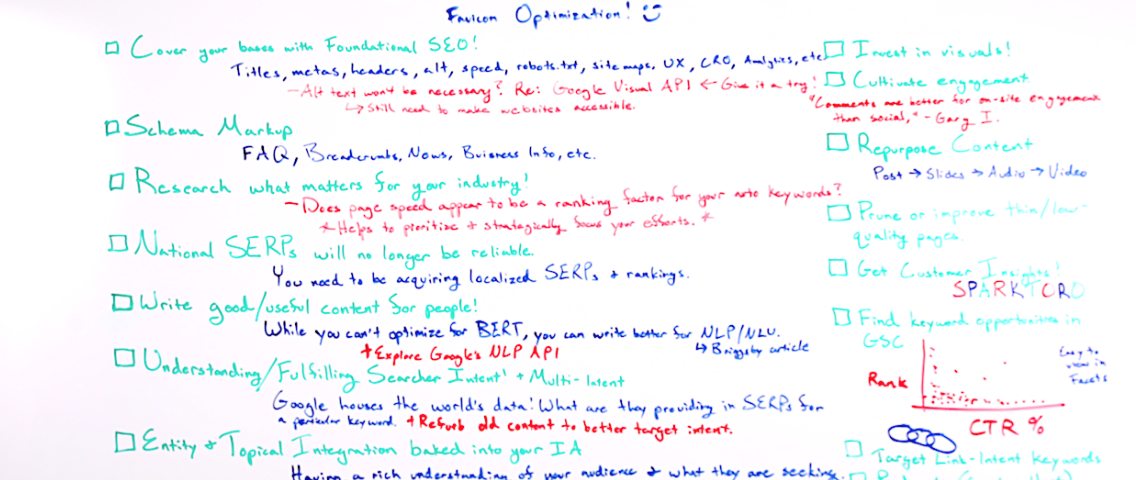 Favicon Optimization!
Cover your bases with Foundational SEO!
Titles, metas, headers, alt, speed, robots.txt, site maps, UX, CRO, Analytics, etc.
- Alt text won't be necessary? Re: Google Visual API ← Give it a try!
↳ Still need to make websites accessible.
Schema Markup
FAQ, Breadcrumbs, News, Buisness Info, etc.
Research what matters for your industry!
- Does page speed appear to be a ranking factor for your auto keywords?
* Helps to prioritize + strategically focus your efforts. *
National SERPs will no longer be reliable.
You need to be acquiring localized SERPs + rankings.
Write good/useful content for people!
While you can't optimize for BERT, you can write better for NLP/NLU.
+ Explore Google's NLP API
↳ Briggsby article
Understanding/Fulfilling Searcher Intent + Multi-Intent
Google houses the world's data! What are they providing in SERPs for
a particular keyword. + Refurb old content to better target intent.
Entity + Topical Integration baked into your IA
Having a rich understanding of your audience + what they are seeking.
Invest in visuals!
Cultivate engagement
"Comments are better for on-site engagement
than social," - Gary I.
Repurpose Content
Post → Slides → Audio → Video
Prune or improve thin/low-
quality pages.
Get Customer Insights!
SPARKTORO
Find keyword opportunities in
GSC
Easy to
view in
Facets
Rank
CTR %
Target Link-Intent Keywords